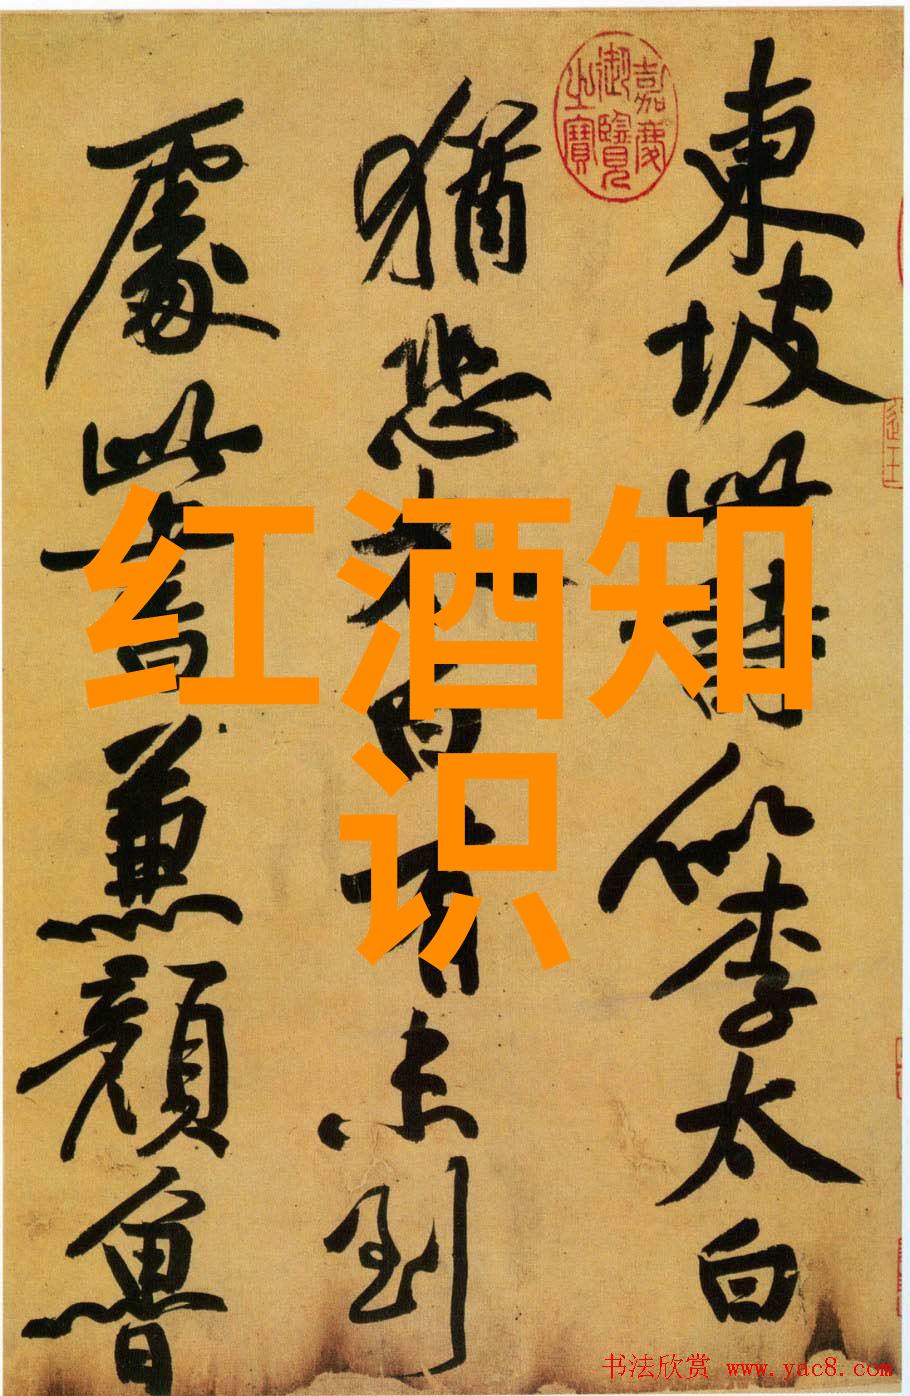 東坡此詩似李太白
嘉慶
御覽
之寶
猶恐太白有未到
處此書兼顏魯
红酒知
识
书法欣赏 www.yac8.com